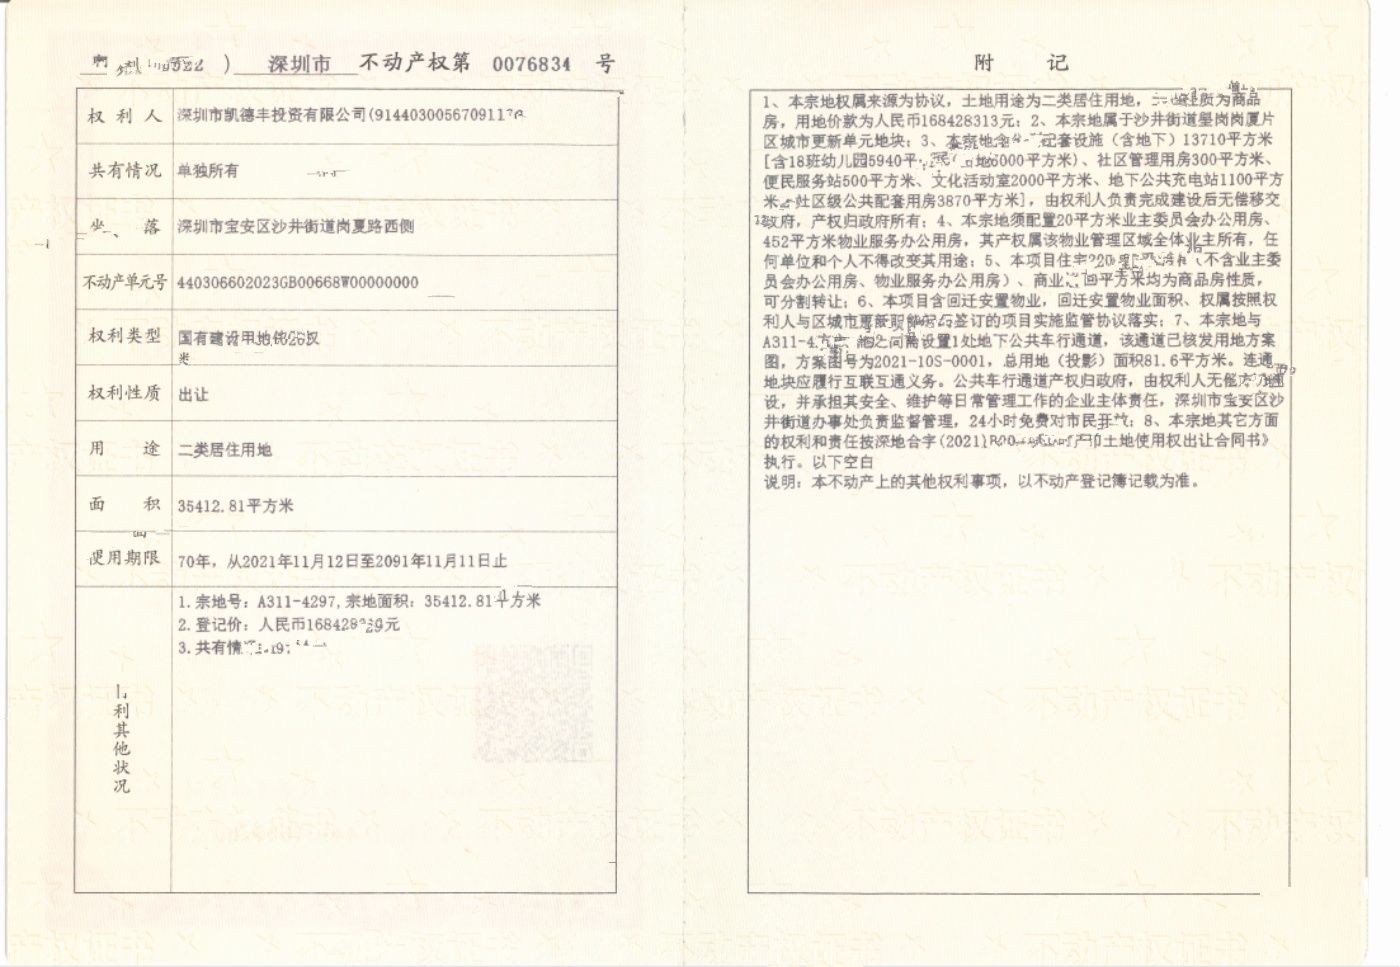 深圳市 不动产权第 0076834 号
权利人 深圳市凯德丰投资有限公司(91440300567091
共有情况 单独所有
落 深圳市宝安区沙井街道岗夏路西侧
不动产单元号 440306602023GB00668W00000000
权利类型 国有建设用地
权利性质 出让
用途 二类居住用地
面积 35412.81平方米
使用期限 70年，从2021年11月12日至2091年11月11日止
利其他状况
1.宗地号：A311-4297,宗地面积：35412.81平方米
2.登记价：人民币168428 元
3.共有情
附 记
1、本宗地权属来源为协议，土地用途为二类居住用地， 性质为商品
房，用地价款为人民币168428313元；2、本宗地属于沙井街道壆岗岗厦片
区城市更新单元地块；3、本宗地含 配套设施（含地下）13710平方米
[含18班幼儿园5940平 6000平方米）、社区管理用房300平方米、
便民服务站500平方米、文化活动室2000平方米、地下公共充电站1100平方
米 社区级公共配套用房3870平方米]，由权利人负责完成建设后无偿移交
政府，产权归政府所有；4、本宗地须配置20平方米业主委员会办公用房、
452平方米物业服务办公用房，其产权属该物业管理区域全体业主所有，任
何单位和个人不得改变其用途；5、本项目住宅 不含业主委
员会办公用房、物业服务办公用房）、商业 平方米均为商品房性质，
可分割转让；6、本项目含回迁安置物业，回迁安置物业面积、权属按照权
利人与区城市更新 签订的项目实施监管协议落实；7、本宗地与
A311-4 之间需设置1处地下公共车行通道，该通道已核发用地方案
图，方案图号为2021-10S-0001，总用地（投影）面积81.6平方米。连通
地块应履行互联互通义务。公共车行通道产权归政府，由权利人无偿
设，并承担其安全、维护等日常管理工作的企业主体责任，深圳市宝安区沙
井街道办事处负责监督管理，24小时免费对市民开放；8、本宗地其它方面
的权利和责任按深地合字(2021) 土地使用权出让合同书》
执行。以下空白
说明：本不动产上的其他权利事项，以不动产登记簿记载为准。